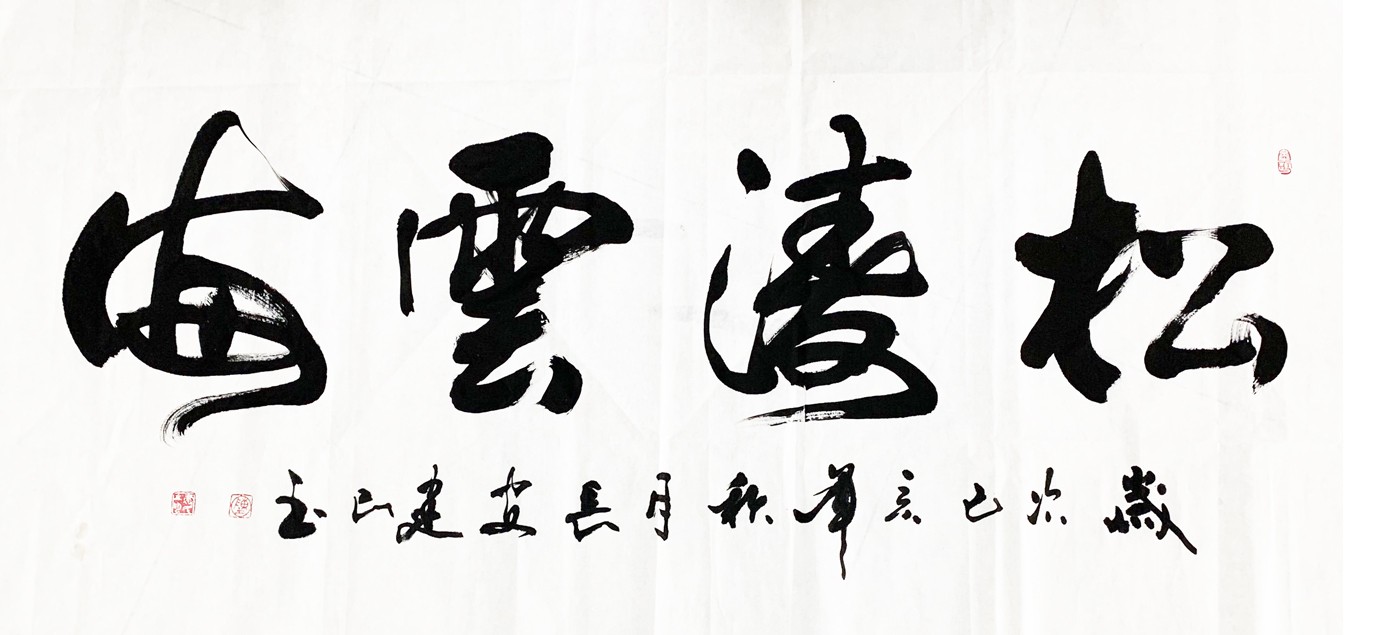 松濤雲海
歲次己亥年秋月長安建山玉